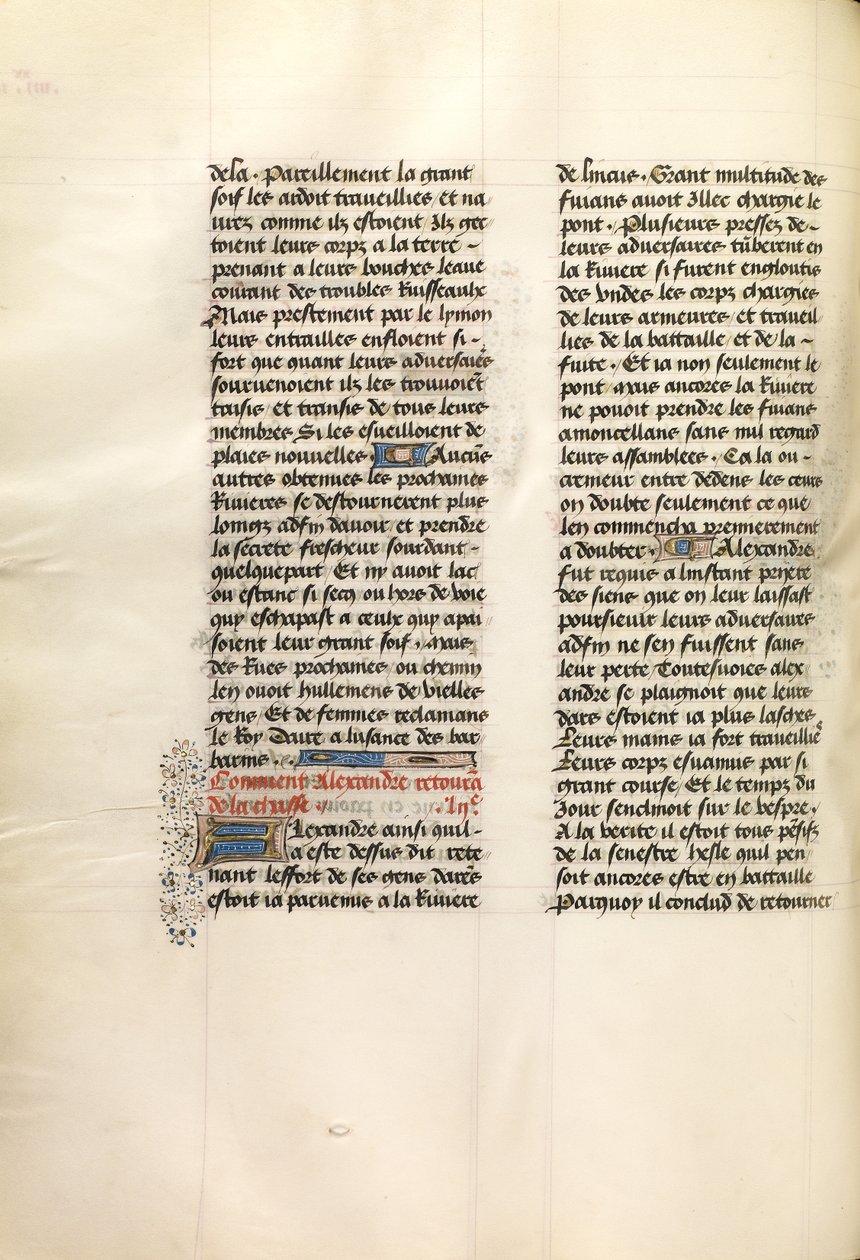 dela. Pareillement la grant
soif les ardoit traveillies / et na
vrez comme ilz estoient / Ilz get
toient leurs corpz a la terre -
prenant a leurs bouches leaue
courant des troubles Ruisseaulx
Mais prestement par le lymon
leurs entrailles enfloient si -
fort que quant leurs adversaires
sourvenoient ilz les trouvoiẽt
transis de tous leurs
membres Si les esveilloient de
plaies nouvelles. Aucũs
autres obtenues les prochaines
Rivieres se destournerent plus
loingz adfin davoir / et prendre
la secrete frescheur sourdant -
quelquepart / Et ny avoit lac
ou estanc si secq ou hors de voie
quy eschapast a ceulx quy apai
soient leur grant soif. Mais
des Rues prochaines / ou chemin
len ouoit hullemens de vielles
gens / Et de femmes reclamans
le Roy Daire a lusance des bar
barins.
Comment Alexandre retourã
de la chasse. .lyᵉ.
Alexandre ainsi quil -
a este dessus dit rete
nant leffort de ses gens darẽs
estoit ia parvenus a la Riviere
de lincus. Grant multitude des
fuians avoit Illec chargie le
pont. Plusieurs pressez de -
leurs adversaires tũberent en
la Riviere si furent engloutis
des undes les corpz chargies
de leurs armeures / et traveil
lies de la bataille et de la -
fuite. Et ia non seulement le
pont / mais ancores la Riviere
ne pouoit prendre les fuians
amoncellans sans nul regard
leurs assamblees. Ca la ou -
cremeur entre dedens les ceurs
on doubte seulement ce que
len commencha premierement
a doubter. Alexandre
fut requis a linstant priere
des siens que on leur laissast
poursievir leurs adversaires
adfin ne sen fuissent sans
leur perte Toutesvoies alex
andre se plaignoit que leurs
dars estoient ia plus lasches
Leurs mains ia fort traveillies
Leurs corpz esvanuis par si
grant course / Et le tempz du
Jour senclinoit sur le vespre.
A la verite il estoit tous pẽsifz
de la senestre hesle quil pen
soit ancores estre en battaille
Parquoy il conclud de retourner